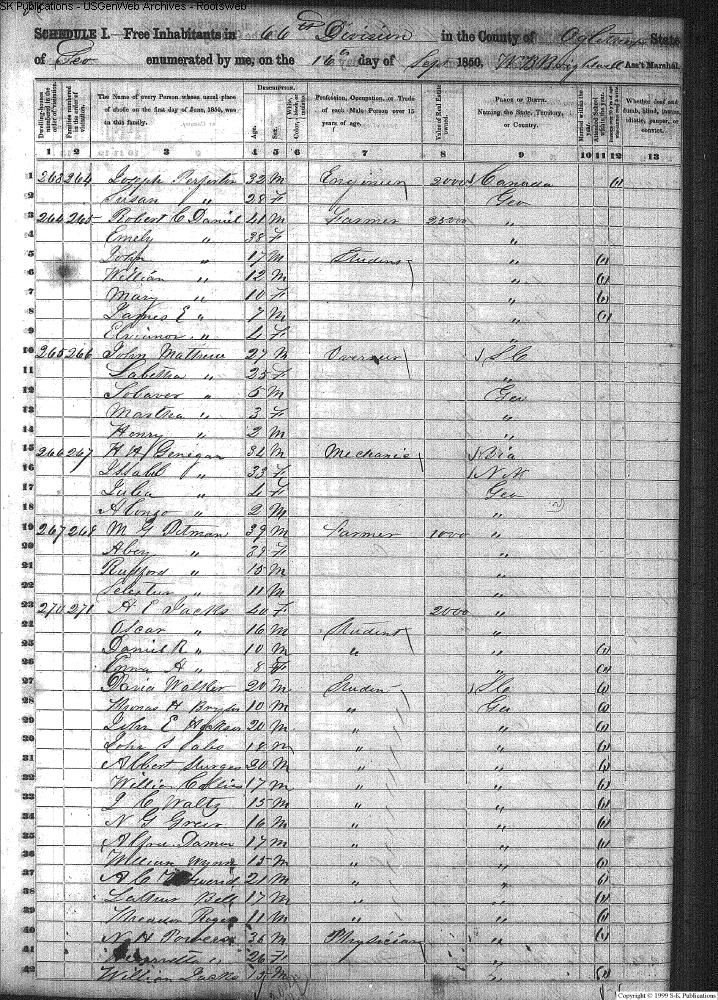 SK Publications - USGenWeb Archives - Rootsweb
SCHEDULE I.—Free Inhabitants in 66th Division in the County of State
of Geo enumerated by me, on the 16th day of Sept 1850. Ass't Marshal.
Dwelling-houses numbered in the order of visitation.
Families numbered in the order of visitation.
The Name of every Person whose usual place of abode on the first day of June, 1850, was in this family.
DESCRIPTION.
Age.
Sex.
White, black, or mulatto.
Profession, Occupation, or Trade of each Male Person over 15 years of age.
Value of Real Estate owned.
PLACE OF BIRTH. Naming the State, Territory, or Country.
Married within the year.
Attended School within the year.
Whether deaf and dumb, blind, insane, idiotic, pauper, or convict.
1 2 3 4 5 6 7 8 9 10 11 12 13
1 263 264 Joseph 32 M Engineer 2000 Canada (1)
2 Susan " 28 F Geo
3 264 265 Robert C Daniel 41 M Farmer 25000 "
4 Emely " 38 F "
5 John " 17 M Student " (1)
6 William " 12 M " (1)
7 Mary " 10 F " (1)
8 James E " 7 M " (1)
9 " 4 F "
10 265 266 John Mathew 27 M Overseer S C
11 " 25 F "
12 " 5 M Geo
13 Martha " 3 F "
14 Henry " 2 M "
15 266 267 H H 34 M Mechanic Via
16 Issabl " 33 F
17 Julia " 4 F Geo
18 Alonzo " 2 M "
19 267 268 M G Pitman 39 M Farmer 1000 "
20 " 39 F "
21 " 15 M "
22 " 11 M "
23 270 271 A E Jacks 40 F 2000 "
24 Oscar " 16 M Student "
25 Daniel R " 10 M " " (1)
26 Emma A " 8 F " (1)
27 David Walker 20 M Studen S C (1)
28 Thomas H 10 M " Geo (1)
29 John E 20 M " " (1)
30 John S 18 M " " (1)
31 Albert Sturges 20 M " " (1)
32 William Collins 17 M " " (1)
33 J C Waltz 15 M " " (1)
34 N G Greer 16 M " " (1)
35 17 M " " (1)
36 William 15 M " " (1)
37 A C 21 M " " (1)
38 Bell 17 M " " (1)
39 11 M " " (1)
40 N H 36 M Physician " (1)
41 " 26 F "
42 William Jacks 15 M " (1)
Copyright © 1999 S-K Publications